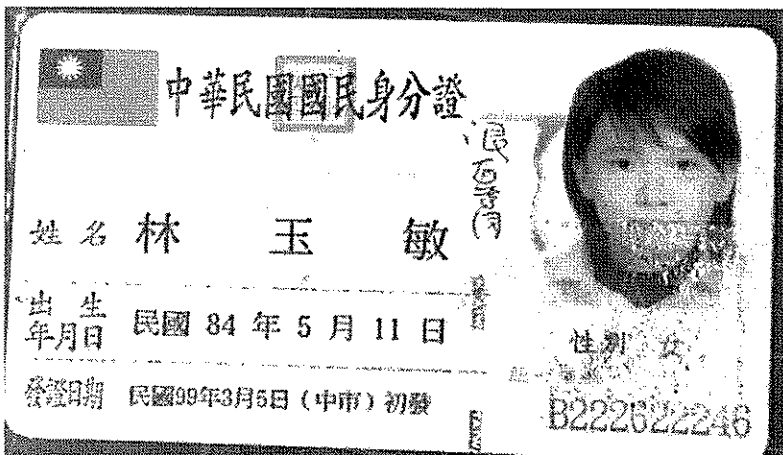 中華民國國民身分證
姓名 林玉敏
出生年月日 民國 84 年 5 月 11 日
性別 女
發證日期 民國99年3月5日（中市）初發
B222622246